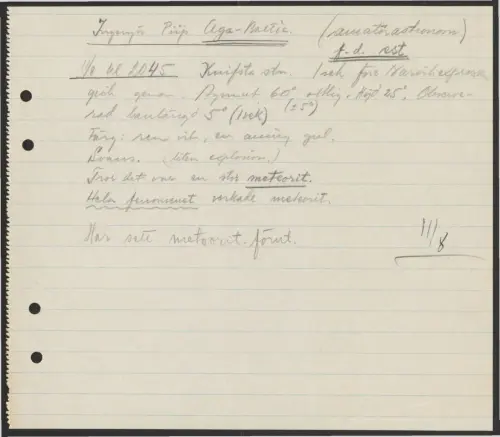 Ingenjör Piip Aga-Baltic. (amatörastronom)
f.d. est.
11/8 kl 2045 Knivsta stn. 1 sek före Narvikexpressen
gick genom. Azymut 60° ostlig. Höjd 25°. Observe-
rad banlängd 5° (1 sek) (±5°)
Färg: ren vit, en aning gul.
Svans. (liten explosion.)
Tror det var en stor meteorit.
Hela fenomenet verkade meteorit.
Har sett meteorit förut.
11/8